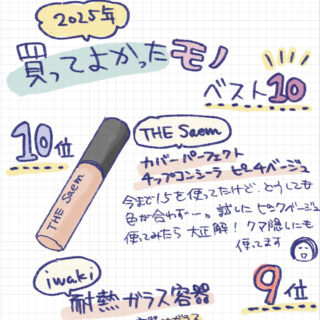 2025年
買ってよかったモノ
ベスト10
10位
THE Saem
THE Saem
カバーパーフェクト
チップコンシーラ ピーチベージュ
今まで1.5を使ってたけど、どうしても
色が合わず…。試したピンクベージュ
使ってみたら 大正解！クマ隠しにも
使ってます
iwaki
耐熱ガラス容器
9位